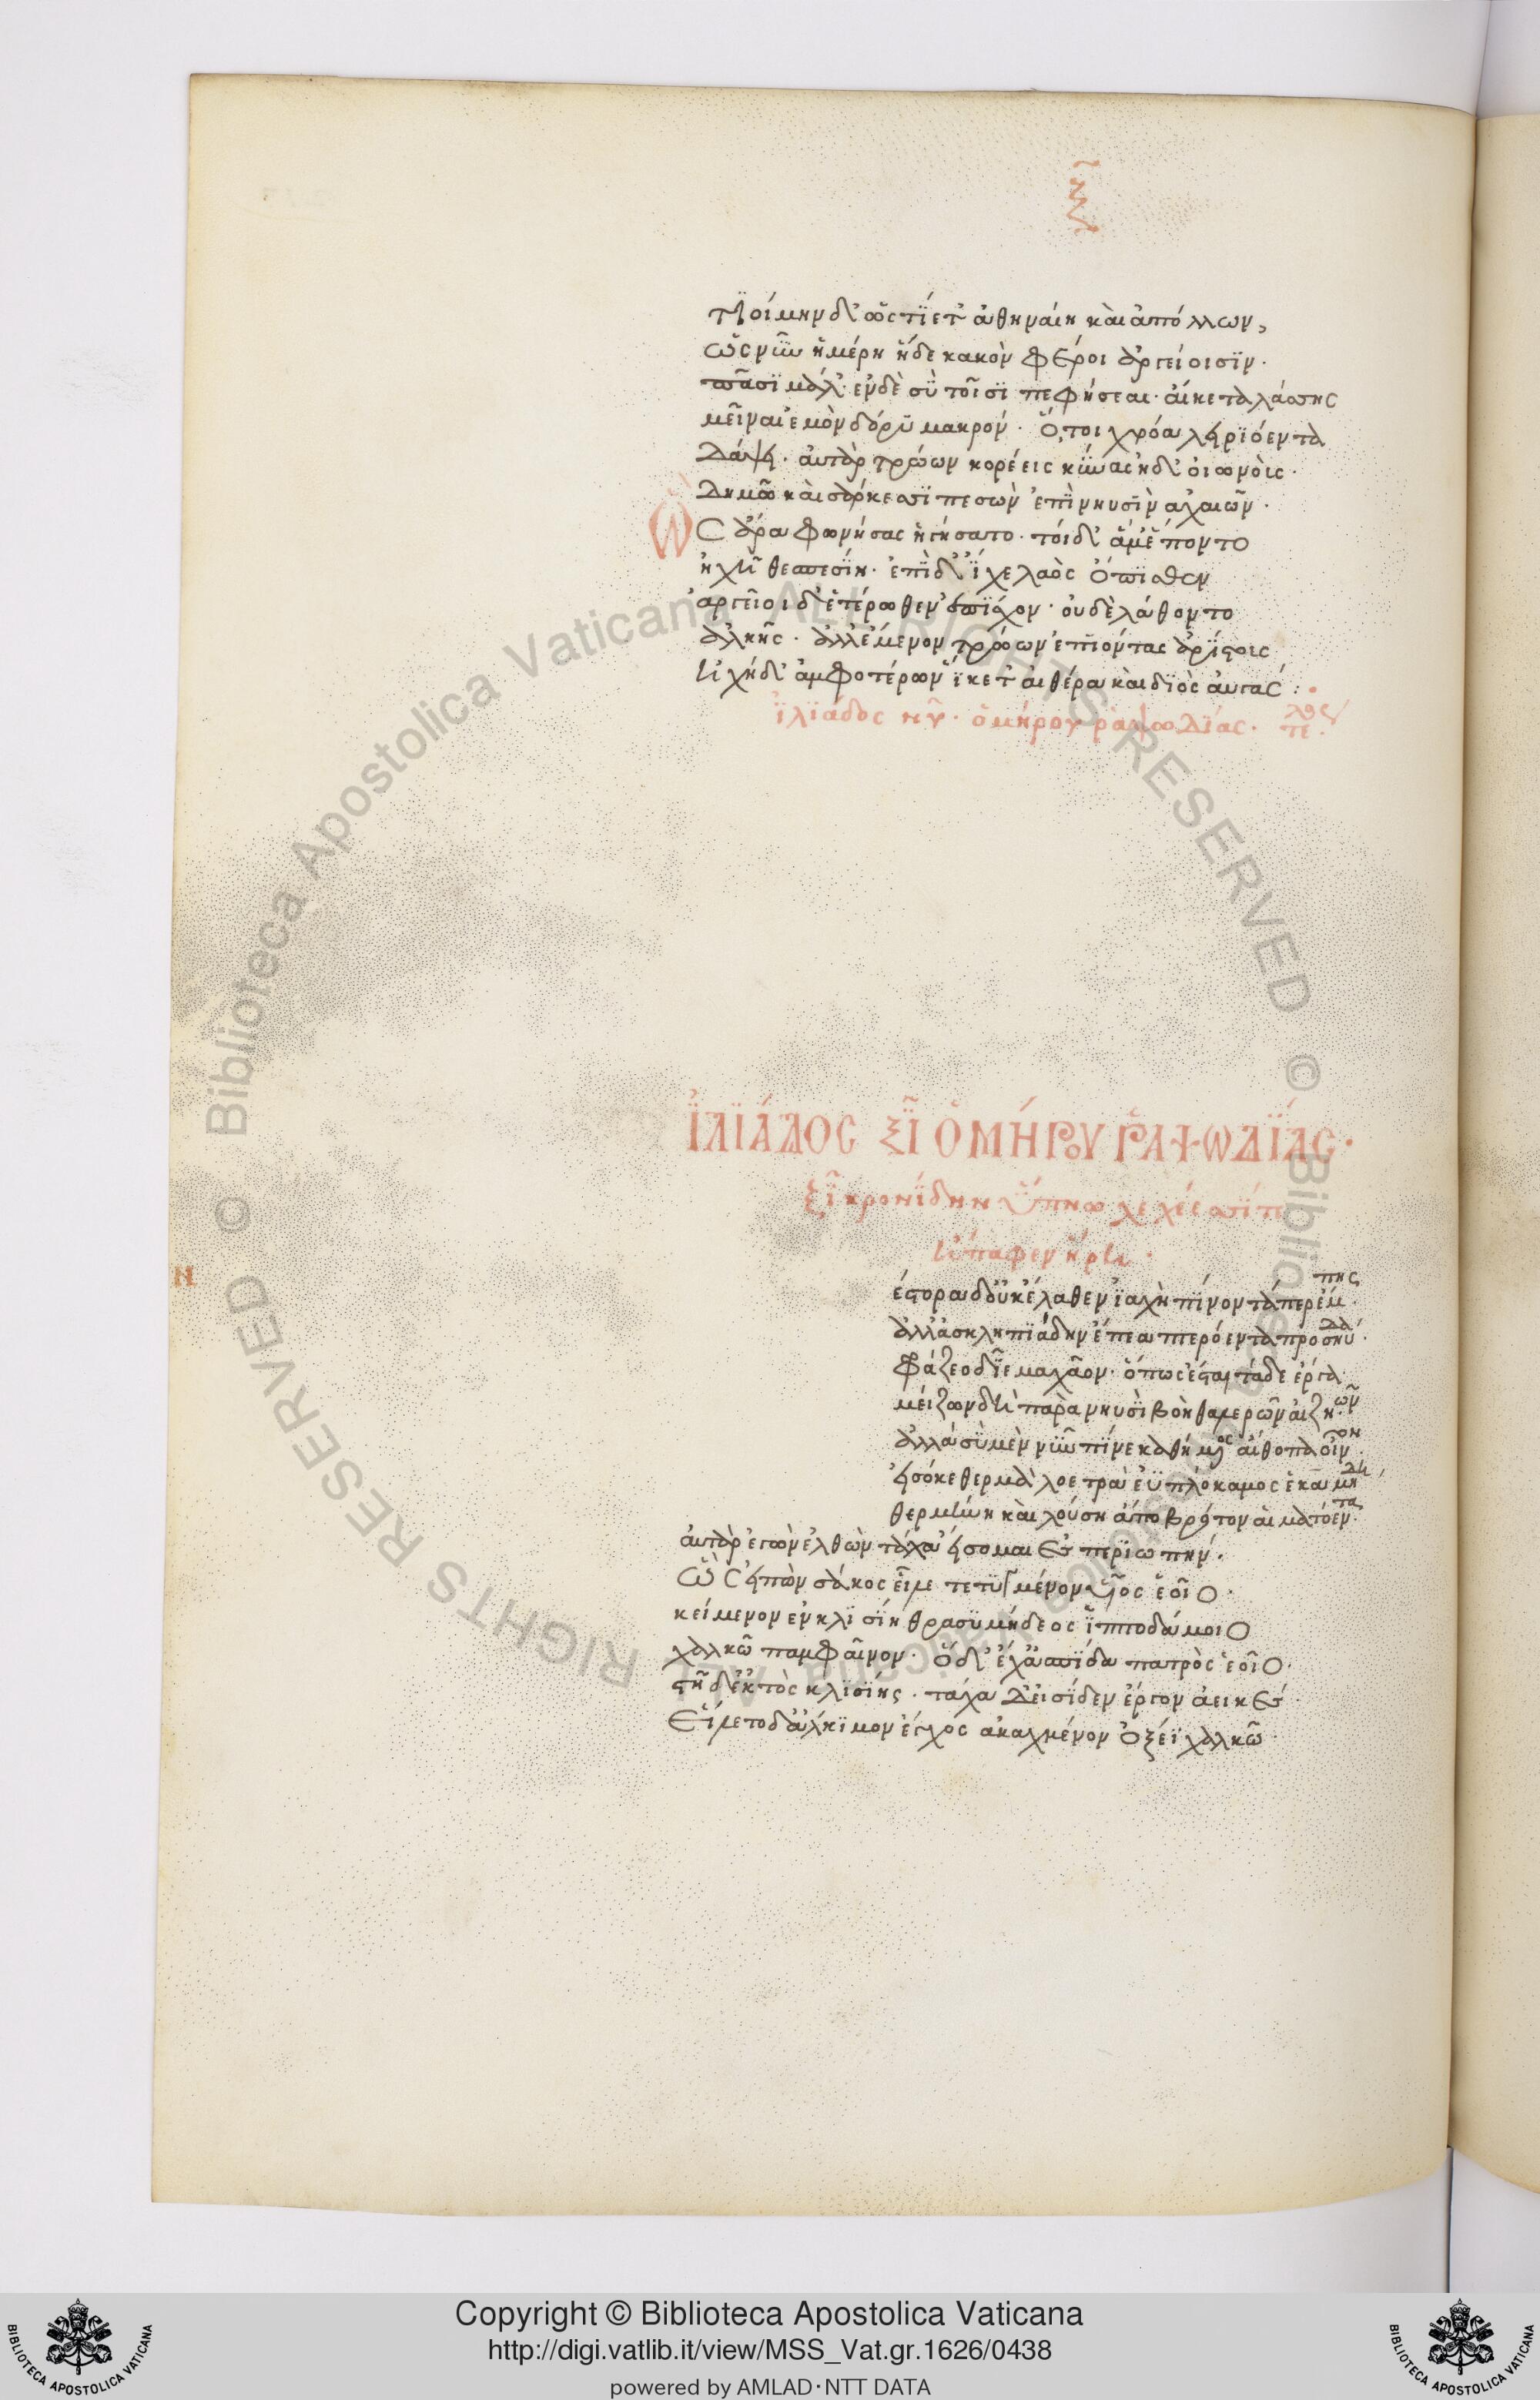 ξ̃
τϊοίμην δ' ὡς τΐετ' ἀθηναίη καὶ ἀπόλλων,
ὡς νῦν ἡμέρη ἥδε κακὸν φέροι ἀργείοισϊν·
πᾶσϊ μάλ'· ἐν δὲ σὺ τοῖσϊ πεφήσεαι· αἴκε ταλάσσης
μεῖναι ἐμὸν δόρϋ μακρόν· ὅ,τοι χρόα λειριόεντα
δάψει· ἀυτὰρ τρώων κορέεις κύνας ἠδ' οἰωνοὺς·
δημῶ καὶ σάρκεσσϊ πεσὼν ἐπὶ νηυσὶν ἀχαιῶν·
Ὣς ἄρα φωνήσας ἡγήσατο· τοὶ δ' ἅμ' ἕποντο
ἠχῆ θεσπεσίη· ἐπὶ δ' ἴαχε λαὸς ὄπισθεν
ἀργεῖοι δ' ἑτέρωθεν ἐπΐαχον· οὐδὲ λάθοντο
ἀλκῆς· ἀλλ' ἔμενον τρώων ἐπιόντας ἀρίστους
ἠχὴ δ' ἀμφοτέρων ἵκετ' αἰθέρα καὶ διὸς ἀυγάς:
ἰ̈λϊάδος νῦ· ὁμήρου ῥαψωδΐας· πέρας
ἸΛΪΆΔΟΣ ΞΙ͂ ὉΜΉΡΟΥ ῬΑΨΩΔΪ́ΑΣ·
ξῖ κρονίδην ὕπνω
ἥρη·
Η
έστορα δ' οὐκ ἔλαθεν ἰαχὴ πίνοντα περ ἔμπης·
ἀλλ' ἀσκληπϊάδην ἔπεα πτερόεντα προσηύδα·
φράζεο δῖε μαχᾶον· ὅπως ἔσται τάδε ἔργα
μείζων δὴ παρὰ νηυσὶ βοὴ θαλερῶν αἰζηῶν·
ἀλλὰ σὺ μὲν νῦν πῖνε καθήμενος αἴθοπα οἶνον·
εἰσόκε θερμὰ λοετρὰ ἐϋπλόκαμος ἑκαμήδη
θερμήνη καὶ λούση ἄπο βρότον αἱματόεντα·
ἀυτὰρ ἐγὼν ἐλθὼν τάχα εἴσομαι ἐς περϊωπήν·
Ὣς εἰπὼν σάκος εἷλε τετυγμένον υἷος ἑοῖο·
κείμενον ἐν κλϊσίη θρασϋμήδεος ἱπποδάμοιο
χαλκῶ παμφαῖνον· ὁ δ' ἔχ' ἀσπίδα πατρὸς ἑοῖο·
στῆ δ' ἐκτὸς κλισίης· τάχα δ' εἰσΐδεν ἔργον ἀεικές·
Εἵλετο δ' ἄλκϊμον ἔγχος ἀκαχμένον ὀξέϊ χαλκῶ
© Biblioteca Apostolica Vaticana ALL RIGHTS RESERVED
Copyright © Biblioteca Apostolica Vaticana
http://digi.vatlib.it/view/MSS_Vat.gr.1626/0438
powered by AMLAD·NTT DATA
BIBLIOTECA APOSTOLICA VATICANA
BIBLIOTECA APOSTOLICA VATICANA